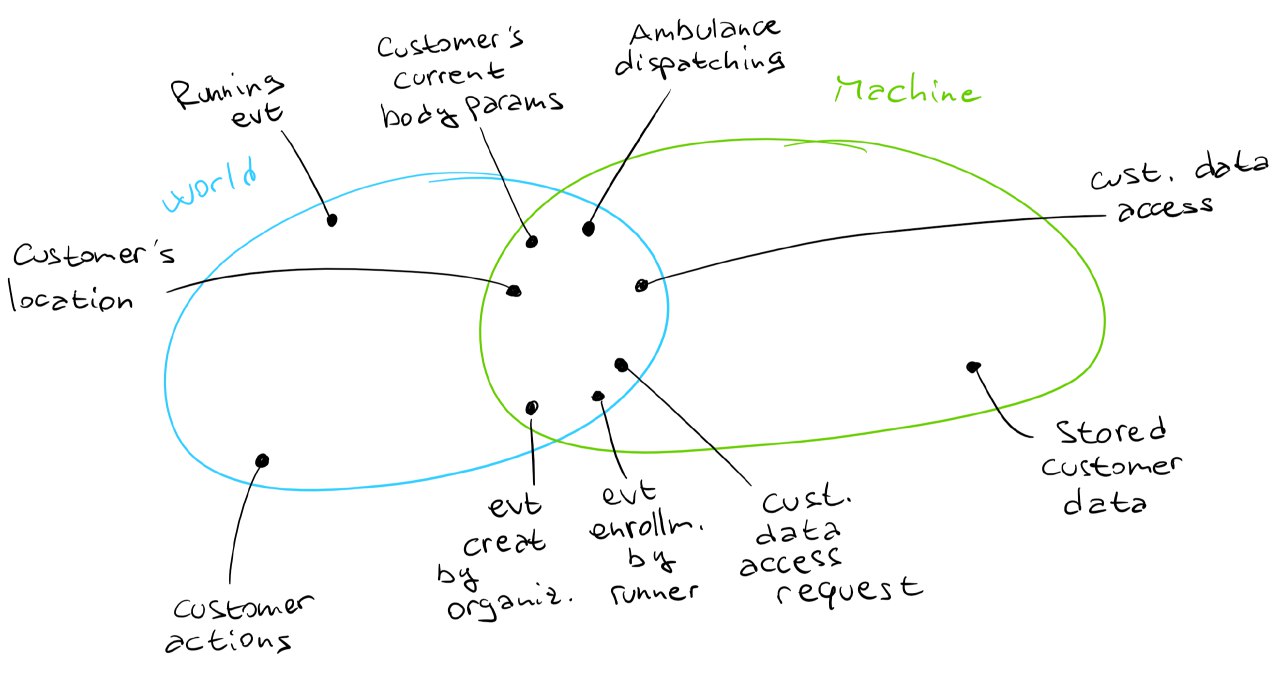 Customer's
current
body params
Ambulance
dispatching
Machine
Running
evt
world
cust. data
access
Customer's
location
Stored
customer
data
evt
creat
by
organiz.
evt
enrollm.
by
runner
cust.
data
access
request
customer
actions